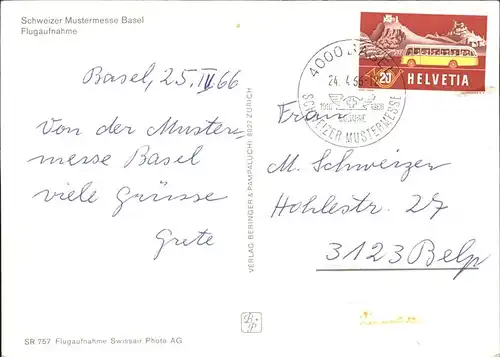 Schweizer Mustermesse Basel
Flugaufnahme
Basel, 25. IV 66
Von der Muster-
messe Basel
viele Grüsse
Grete
SR 757 Flugaufnahme Swissair Photo AG
VERLAG BERINGER & PAMPALUCHI 8122 ZÜRICH
B+P
20 HELVETIA
4000 BASEL
24.4.66
1916 1966
SCHWEIZER MUSTERMESSE
Frau
M. Schweizer
Hohlestr. 27
3123 Belp